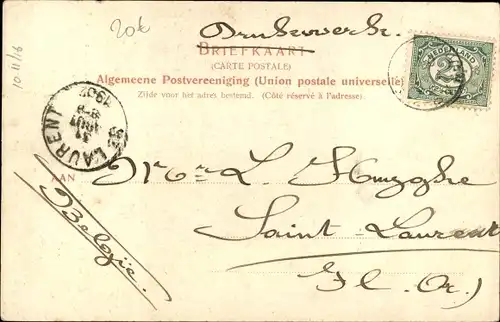 20€
Drukwerk.
BRIEFKAART
(CARTE POSTALE)
Algemeene Postvereeniging (Union postale universelle)
Zijde voor het adres bestemd. (Côté réservé à l'adresse).
10-11/16
NEDERLAND
2½
LAURENT
1903
AAN
Mr L.
Saint Laurent
Fl. Or.)
Belgïe.